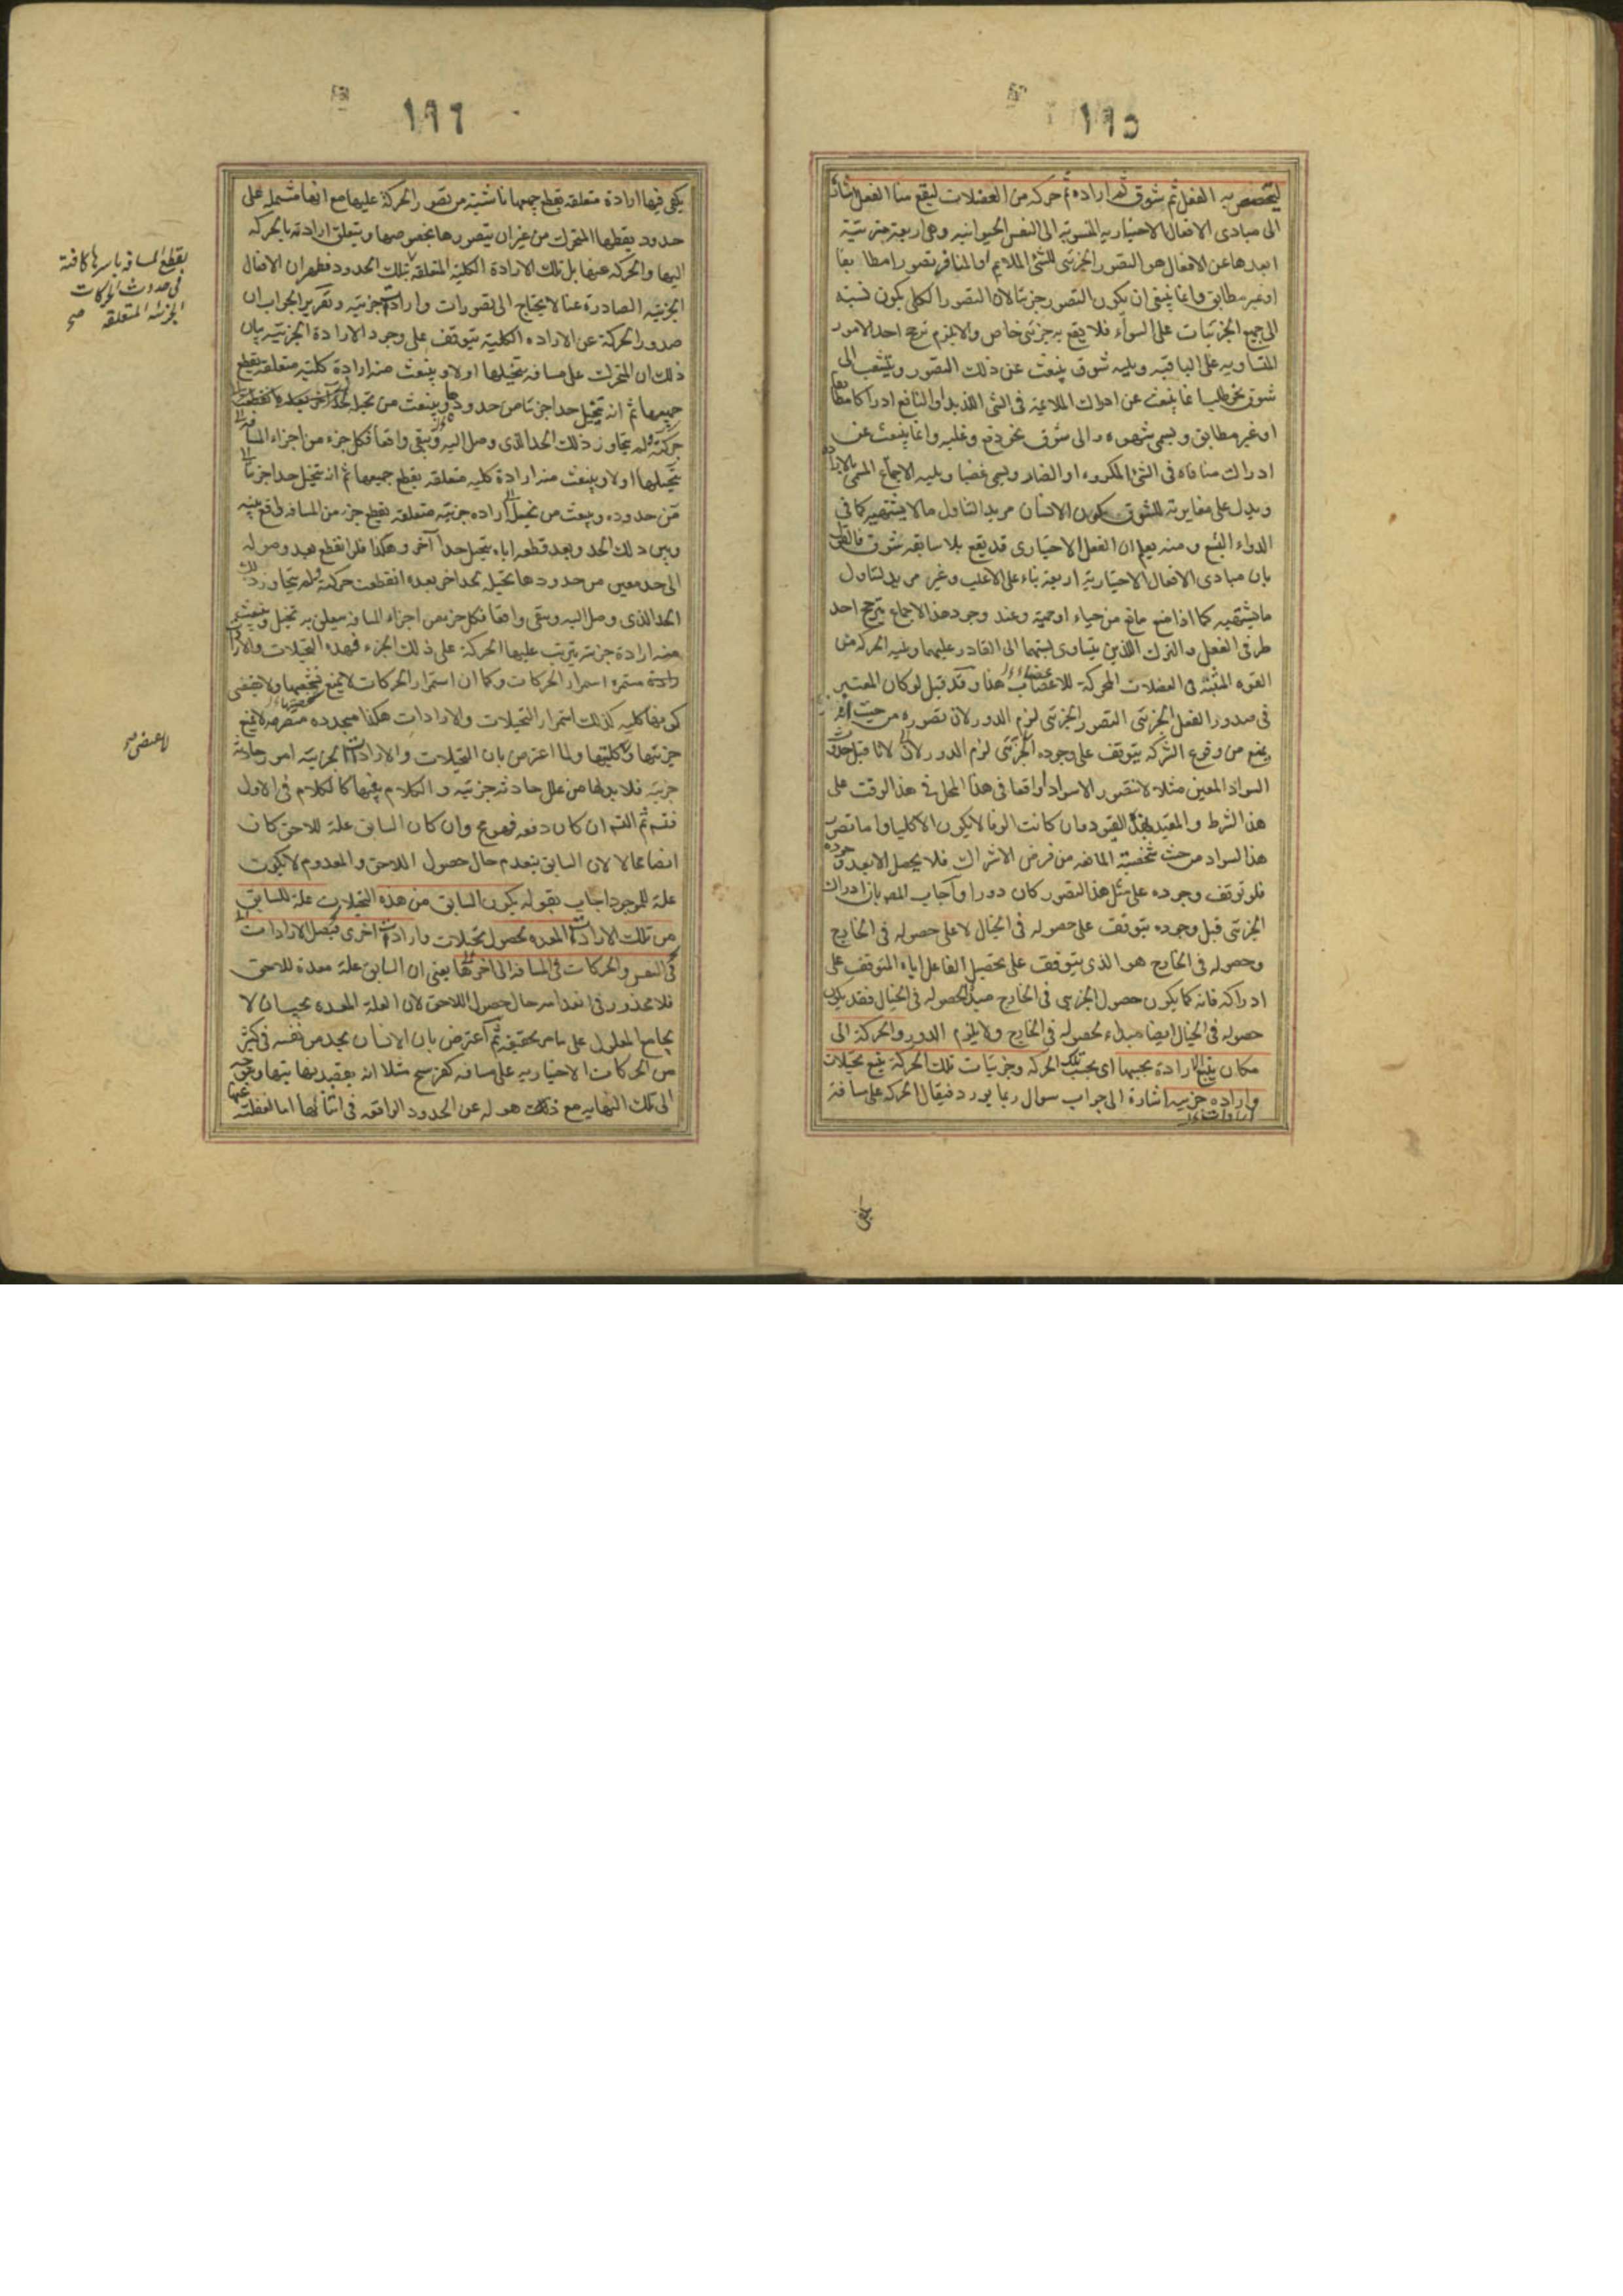 ١٩٥
ليتخصص به الفعل ثم شوق ثم ارادة ثم حركة من العضلات ليقع منا الفعل اشارة
الى مبادى الافعال الاختيارية المنسوبة الى النفس الحيوانية وهى اربعة مترتبة
ابعدها عن الافعال هو التصور الجزئى للشئ الملايم او المنافر تصورا مطابقا
او غير مطابق وانما ينبغى ان يكون التصور جزئيا لان التصور الكلى يكون نسبته
الى جميع الجزئيات على السوآء فلا يقع به جزئى خاص والا يلزم ترجح احد الامور
المتساوية على الباقية ويليه شوق ينبعث عن ذلك التصور ويتشعب الى
شوق نحو طلب انما ينبعث عن ادراك الملائمة فى الشئ اللذيذ او النافع ادراكا مطابقا
او غير مطابق ويسمى شهوة والى شوق نحو دفع وغلبة وانما ينبعث عن
ادراك منافاة فى الشئ المكروه او الضار ويسمى غضبا ويليه الاجماع المسمى بالارادة
ويدل على مغايرته للشوق كون الانسان مريد التناول ما لا يشتهيه كما فى
الدواء البشع ومنه يعلم ان الفعل الاختيارى قد يقع بلا سابقة شوق فالقول
بان مبادى الافعال الاختيارية اربعة بناء على الاغلب وغير مريد لتناول
ما يشتهيه كما اذا منع مانع من حياء او حمية وعند وجود هذا الاجماع يترجح احد
طرفى الفعل والترك اللذين يتساوى نسبتهما الى القادر عليهما ويليه الحركة من
القوة المنبثة فى العضلات المحركة للاعضاء هذا وقد قيل لو كان المعتبر
فى صدور الفعل الجزئى التصور الجزئى لزم الدور لان تصوره من حيث
يمنع من وقوع الشركة يتوقف على وجوده الجزئى لزم الدور لانا قبل حدوث
السواد المعين مثلا لا نتصور الا سوادا واقعا فى هذا المحل فى هذا الوقت على
هذا الشرط والمقيد بهذه القيود وان كانت الوفا لا يكون الا كليا واما تصور
هذا السواد من حيث شخصيته المانعة من فرض الاشتراك فلا يحصل الا بعد وجوده
فلو توقف وجوده على مثل هذا التصور كان دورا واجاب المص بان ادراك
الجزئى قبل وجوده يتوقف على حصوله فى الخيال لا على حصوله فى الخارج
وحصوله فى الخارج هو الذى يتوقف على تحصيل الفاعل اياه المتوقف على
ادراكه فانه كما يكون حصول الجزئى فى الخارج مبدأ لحصوله فى الخيال فقد يكون
حصوله فى الخيال ايضا مبدأ لحصوله فى الخارج ولا يلزم الدور والحركة الى
مكان يتبع ارادة بحسبها اى بحسب تلك الحركة وجزئيات تلك الحركة يتبع تخيلات
وارادة جزئية اشارة الى جواب سوال ربما يورد فيقال الحركة على مسافة
يكفى
١٩٦
يكفى فيها ارادة متعلقة بقطع جميعها ناشئة من تصور الحركة عليها مع انها مشتملة على
حدود يقطعها المتحرك من غير ان يتصورها بخصوصها ويتعلق ارادته بالحركة
اليها والحركة عنها بل تلك الارادة الكلية المتعلقة بتلك الحدود فظهر ان الافعال
الجزئية الصادرة عنا لا يحتاج الى تصورات وارادات جزئية وتقرير الجواب ان
صدور الحركة عن الارادة الكلية يتوقف على وجود الارادة الجزئية بيان
ذلك ان المتحرك على مسافة يتخيلها اولا وينبعث منه ارادة كلية متعلقة بقطع
جميعها ثم انه يتخيل حدا جزئيا من حدودها وينبعث من تخيل
حركته ولم يتجاوز ذلك الحد الذى وصل اليه وبقى واقفا فكل جزء من اجزاء المسافة
يتخيلها اولا وينبعث منه ارادة كلية متعلقة بقطع جميعها ثم انه يتخيل حدا جزئيا
من حدوده وينبعث من تخيله ارادة جزئية متعلقة بقطع جزء من المسافة واقع بينه
وبين ذلك الحد وبعد قطعه اياه يتخيل حدا آخر وهكذا فلو انقطع بعد وصوله
الى حد معين من حدودها تخيله لحد اخر بعده انقطعت حركته ولم يتجاوز ذلك
الحد الذى وصل اليه وبقى واقفا فكل جزء من اجزاء المسافة تعلق به تخيل وينبعث
منه ارادة جزئية يترتب عليها الحركة على ذلك الجزء فهذه التخيلات والارادات
مستمرة استمرار الحركات وكما ان استمرار الحركات لا يمنع شخصيتها ولا يقتضى
كونها كلية كذلك استمرار التخيلات والارادات هكذا متجددة متصرمة لا يمنع
جزئيتها وكليتها ولما اعترض بان التخيلات والارادات الجزئية امور حادثة
جزئية فلا بد لها من علل حادثة جزئية والكلام فيها كالكلام فى الاول
فتم ثم التم ان كان دفعة فهو مح وان كان السابق علة للاحق كان
ايضا محالا لان السابق ينعدم حال حصول اللاحق والمعدوم لا يكون
علة للموجود اجاب بقوله يكون السابق من هذه التخيلات علة للسابق
من تلك الارادات المعدة لحصول تخيلات وارادات اخرى فيتصل الارادات
فى النفس والحركات فى المسافة الى آخرها يعنى ان السابق علة معدة للاحق
فلا محذور فى انعدامه حال حصول اللاحق لان العلة المعدة يجب ان لا
يجامع المعلول على ما مر تحقيقه ثم اعترض بان الانسان يجد من نفسه فى كثير
من الحركات الاختيارية على مسافة كفرسخ مثلا انه يقصد نهايتها
الى تلك النهاية مع ذهوله عن الحدود الواقعة فى اثنائها اما لغفلته عنها
بقطع المسافة باسرها كافية
فى حدوث الحركات
الجزئية المتعلقة صح